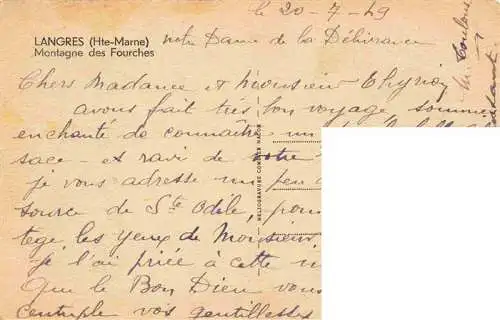 le 20-7-49
LANGRES (Hte-Marne)
Montagne des Fourches
Notre Dame de la Délivrance
Chers Madame et Monsieur Thyrion
avons fait très bon voyage sommes
enchanté de connaître
sace - et ravi de votre
je vous adresse un peu d
source de Ste Odile, pour
tege, les yeux de Monsieur
je l'ai priée à cette
Que le Bon Dieu vous
centuple vos gentillesses
HELIOGRAVURE COMBIER MACON
Toulouse